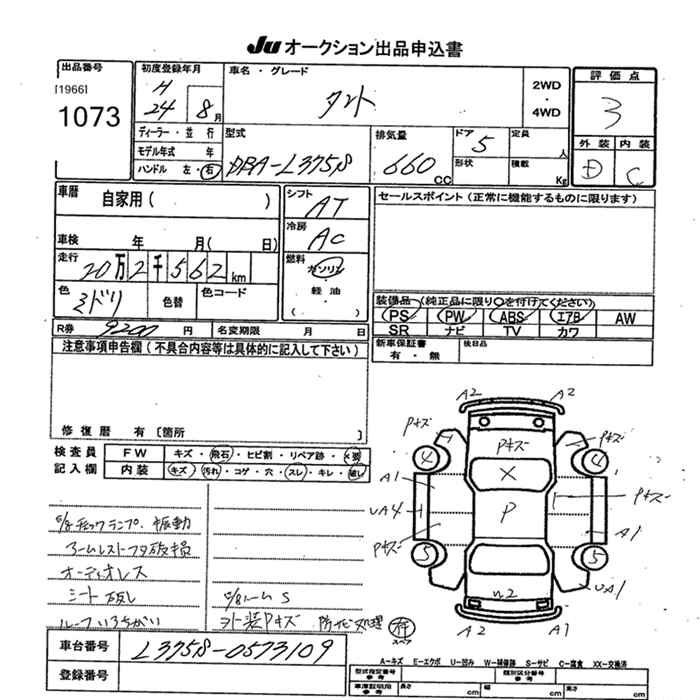 Ju オークション出品申込書
出品番号
[1966]
1073
初度登録年月
H
24 8月
車名・グレード
タント
2WD
・
4WD
評価点
3
外装 内装
D C
ディーラー・並行
モデル年式 年
ハンドル 左・右
型式
DBA-L375S
排気量
660 CC
ドア
5
定員
人
形状
積載
Kg
車歴 自家用( )
車検 年 月( 日)
走行
20万2千562km
色
ミドリ
色替
色コード
シフト
AT
冷房
AC
燃料
ガソリン
・
軽油
・
( )
セールスポイント(正常に機能するものに限ります)
装備品 (純正品に限り○を付けてください)
PS PW ABS エアB AW
SR ナビ TV カワ
R券 9200 円
名変期限 月 日
新車保証書
有・無
後日品
注意事項申告欄(不具合内容等は具体的に記入して下さい)
修復歴 有〔箇所
検査員
記入欄
FW キズ・飛石・ヒビ割・リペア跡・×要
内装 キズ・汚れ・コゲ・穴・スレ・キレ・破し
A2 A2
Pキズ Pキズ Pキズ
4 4
A1 X
UA4 P Pキズ
Pキズ A1
5 5
UA1
A2 A1
チェックランプ. 振動
アームレストフタ破損
オーディオレス
シート
ルーフ
ルームS
外装Pキズ 防サビ処理
有
スペア
車台番号 L375S-0573109
登録番号
A-キズ E-エクボ U-凹み W-補修跡 S-サビ C-腐食 XX-交換済
型式指定番号
参考
類別区分番号
参考
車庫証明用
参考
長さ cm 幅 cm 高さ cm